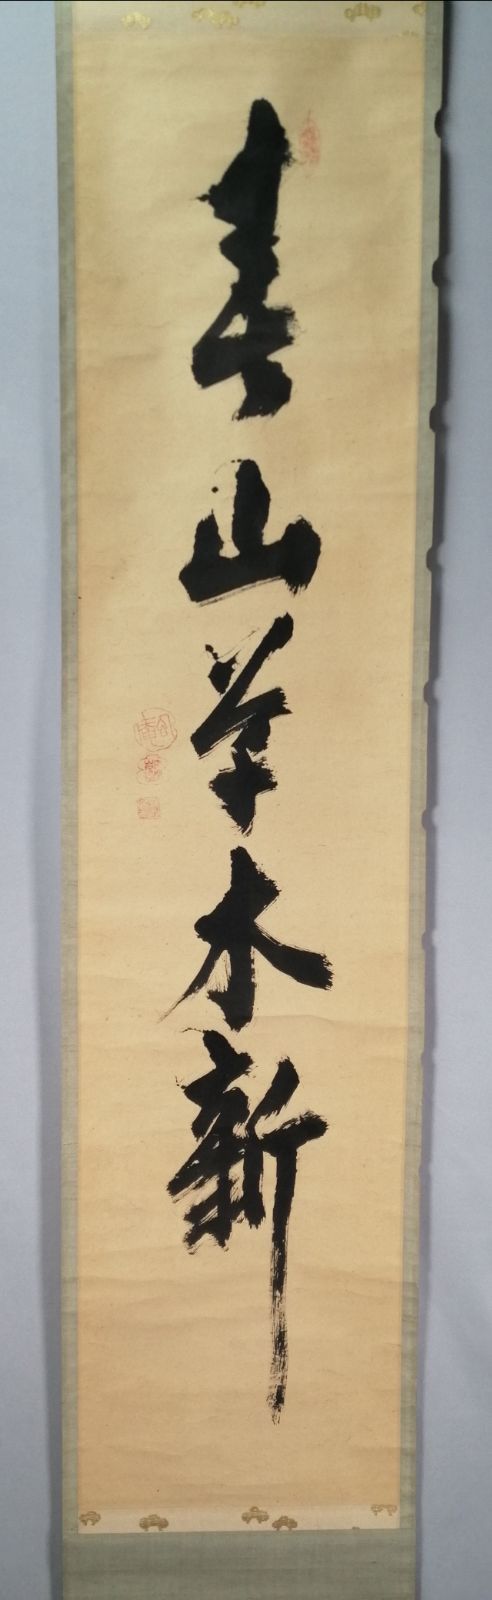 春山草木新